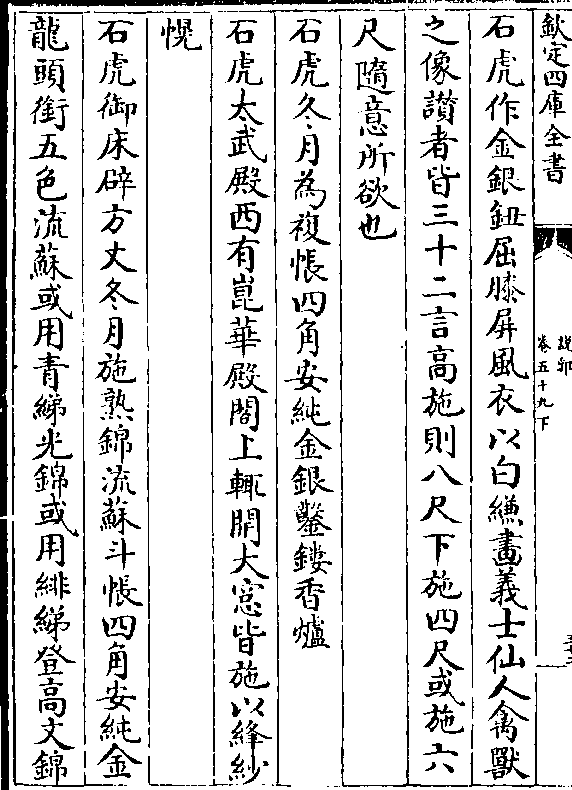 欽定四庫全書
說郛
卷五十九下
石虎作金銀鈕屈膝屏風衣以白縑畫義士仙人禽獸
之像讃者皆三十二言高施則八尺下施四尺或施六
尺隨意所欲也
石虎冬月為複帳四角安純金銀鑿鏤香爐
石虎太武殿西有崑華殿閣上輙開大窓皆施以絳紗
幌
石虎御床辟方丈冬月施熟錦流蘇斗帳四角安純金
龍頭銜五色流蘇或用青綈光錦或用緋綈登高文錦